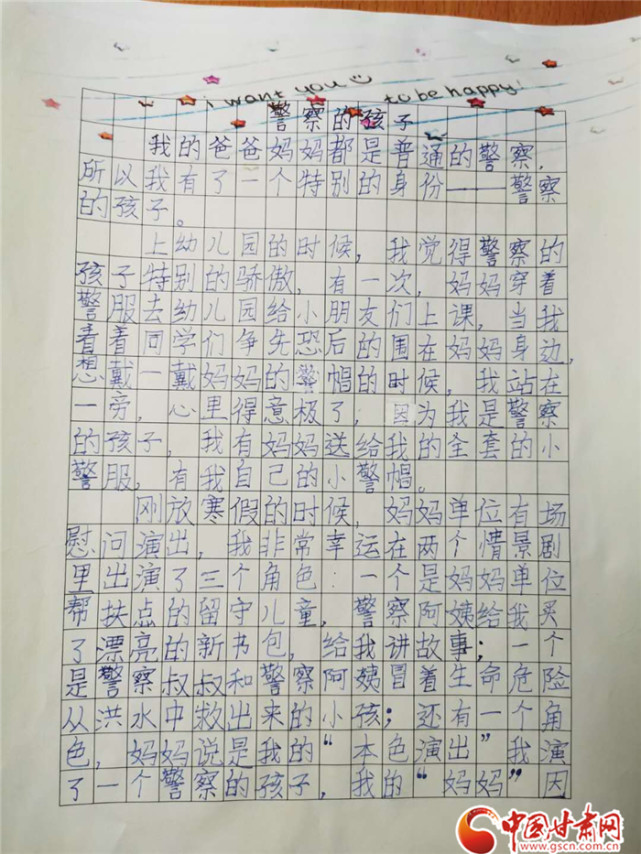 i want you to be happy!
警察的孩子
我的爸爸妈妈都是普通的警察，
所以我有了一个特别的身份——警察
的孩子。
上幼儿园的时候，我觉得警察的
孩子特别的骄傲，有一次，妈妈穿着
警服去幼儿园给小朋友们上课，当我
看着同学们争先恐后的围在妈妈身边，
想戴一戴妈妈的警帽的时候，我站在
一旁，心里得意极了，因为我是警察
的孩子，我有妈妈送给我的全套的小
警服，有我自己的小警帽。
刚放寒假的时候，妈妈单位有场
慰问演出，我非常幸运在两个情景剧
里出演了三个角色：一个是妈妈单位
帮扶点的留守儿童，警察阿姨给我买
了漂亮的新书包，给我讲故事；一个
是警察叔叔和警察阿姨冒着生命危险
从洪水中救出来的小孩；还有一个角
色，妈妈说是我的“本色演出”我演
了一个警察的孩子，我的“妈妈”因
中国甘肃网
www.gscn.com.cn